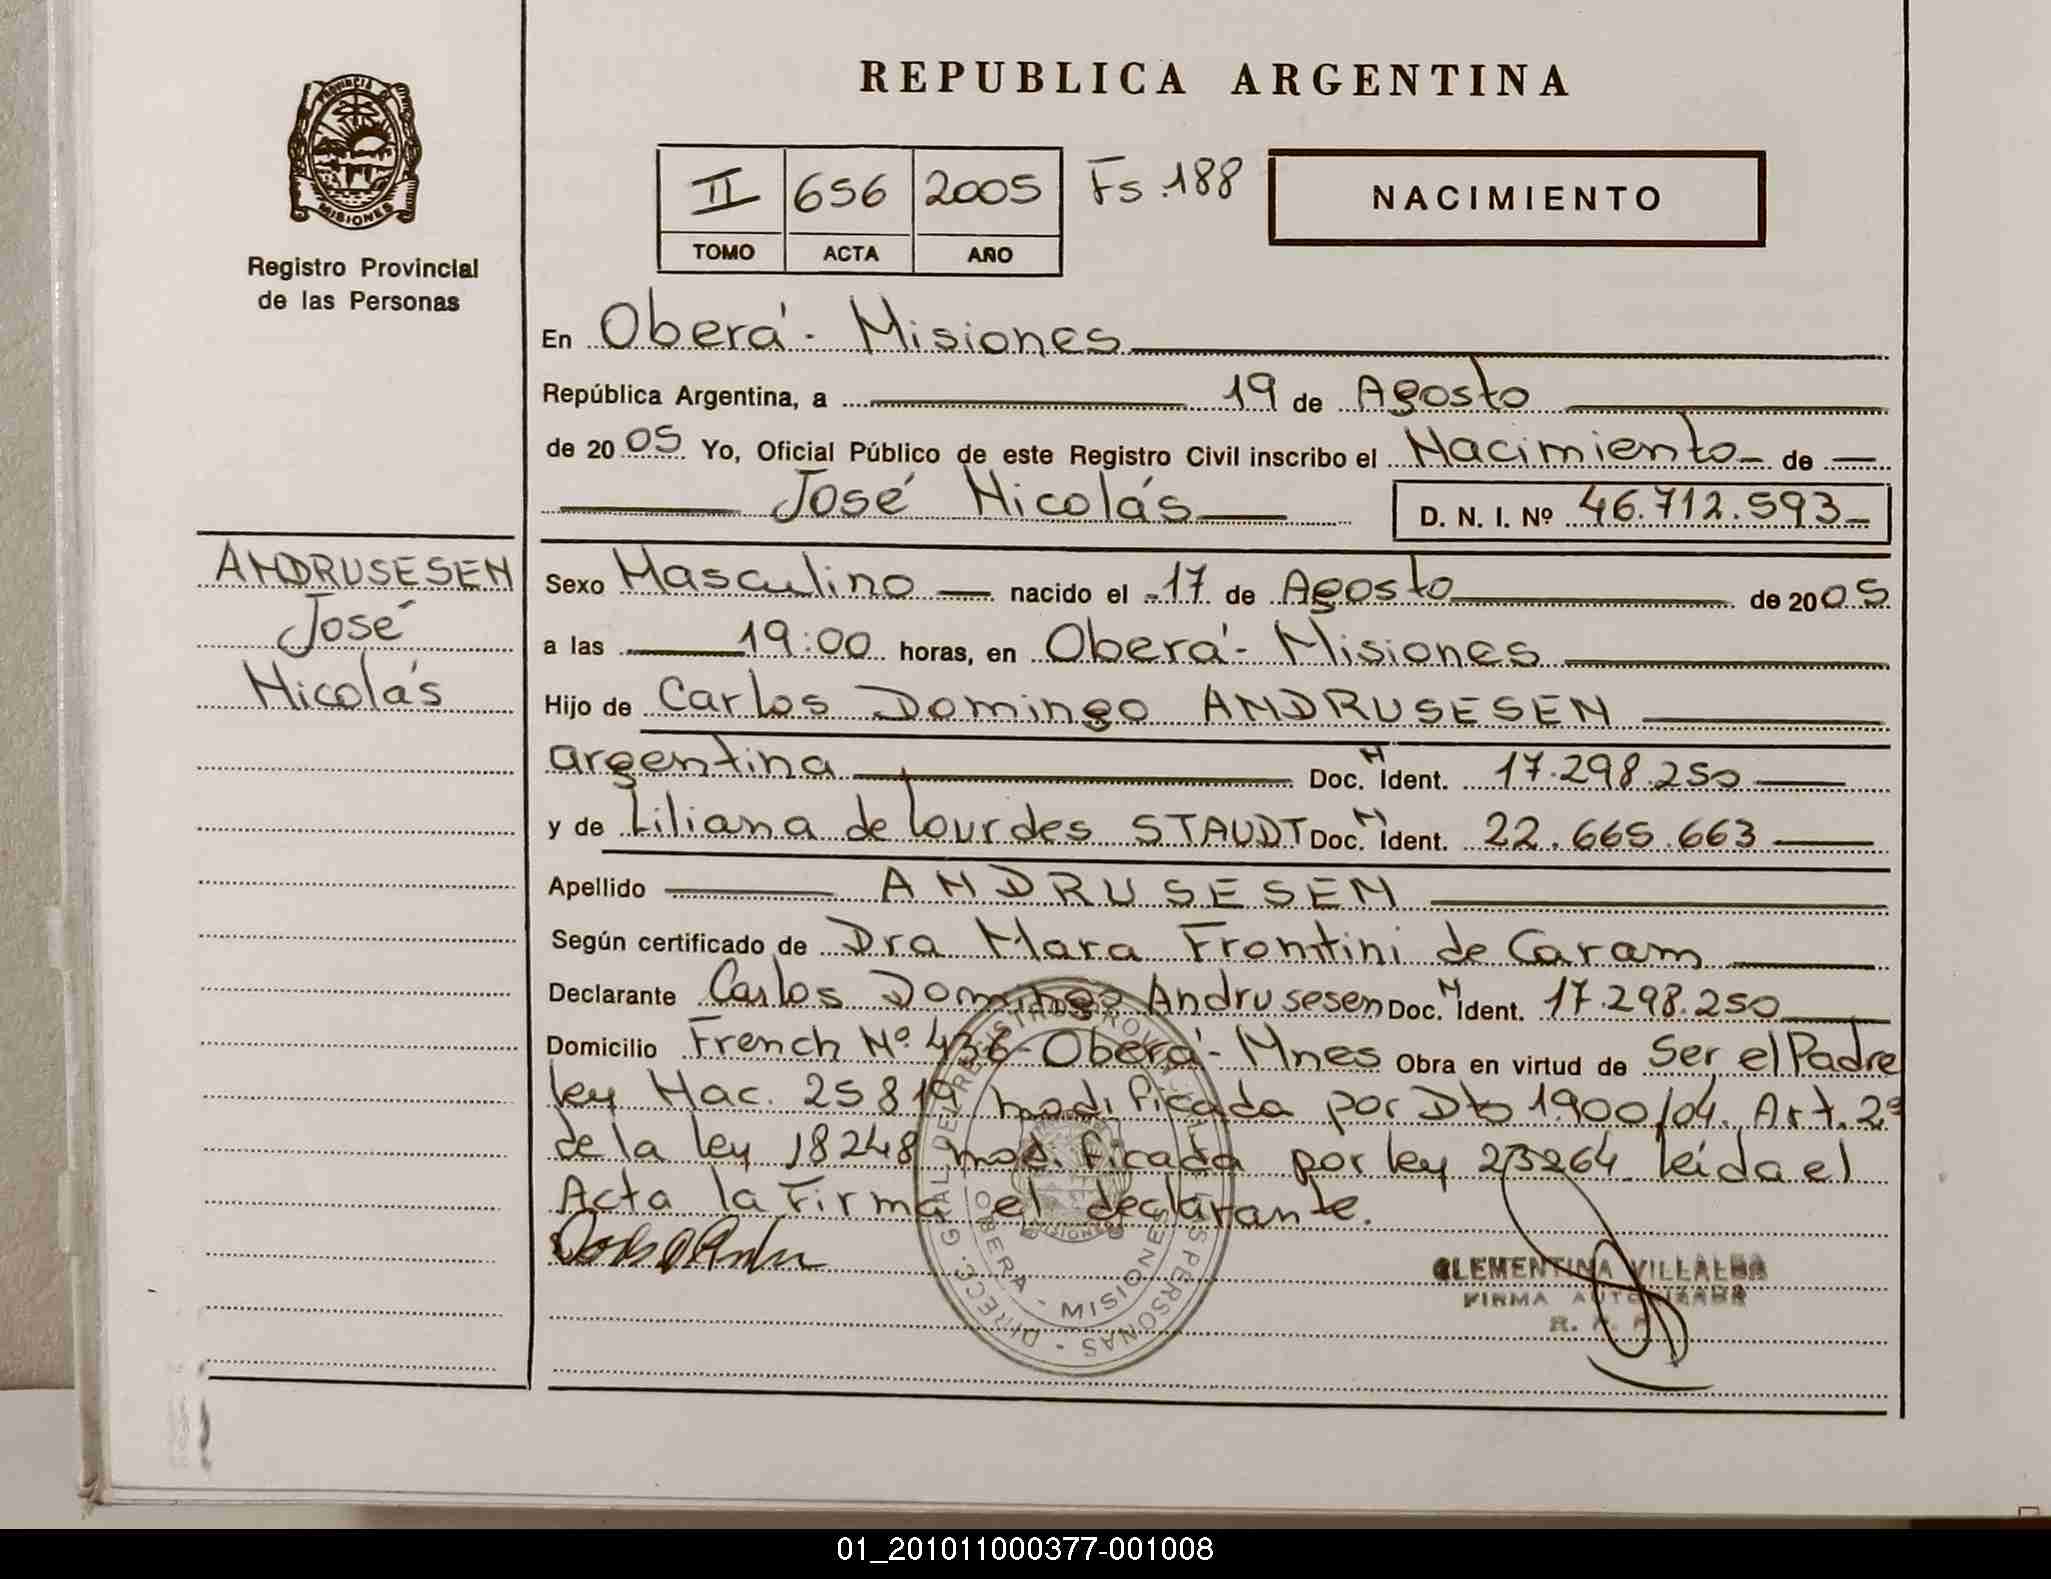 REPUBLICA ARGENTINA
PROVINCIA DE MISIONES
Registro Provincial
de las Personas
II 656 2005 Fs. 188
TOMO ACTA AÑO
NACIMIENTO
En Oberá - Misiones
República Argentina, a 19 de Agosto
de 2005 Yo, Oficial Público de este Registro Civil inscribo el Nacimiento de
José Nicolás D. N. I. Nº 46.712.593
ANDRUSESEN
José
Nicolás
Sexo Masculino nacido el 17 de Agosto de 2005
a las 19:00 horas, en Oberá - Misiones
Hijo de Carlos Domingo ANDRUSESEN
argentina Doc. N Ident. 17.298.250
y de Liliana de Lourdes STAUDT Doc. N Ident. 22.665.663
Apellido ANDRUSESEN
Según certificado de Dra Mara Frontini de Caram
Declarante Carlos Domingo Andrusesen Doc. N Ident. 17.298.250
Domicilio French Nº 436 - Oberá - Mnes Obra en virtud de Ser el Padre
ley Nac. 25819 modificada por Dto 1900/04. Art. 2º
de la ley 18248 modificada por ley 23264 leída el
Acta la Firma el declarante.
DIRECC. GRAL DEL REGISTRO PROVINCIAL DE LAS PERSONAS
OBERA - MISIONES
CLEMENTINA VILLALBA
FIRMA AUTORIZADA
01_201011000377-001008